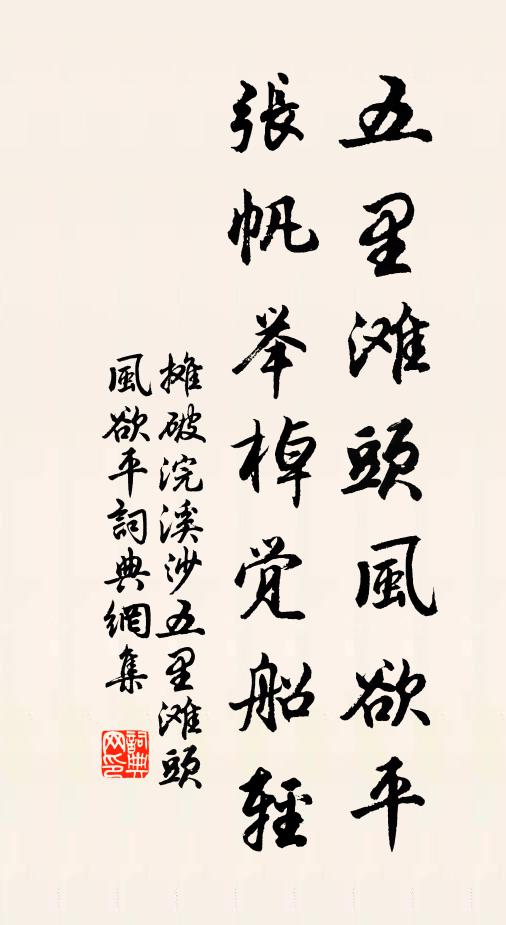 五里滩頭風欲平
張帆举棹觉船輕
摊破浣溪沙五里滩頭
風欲平詞典網集
詞典
网印